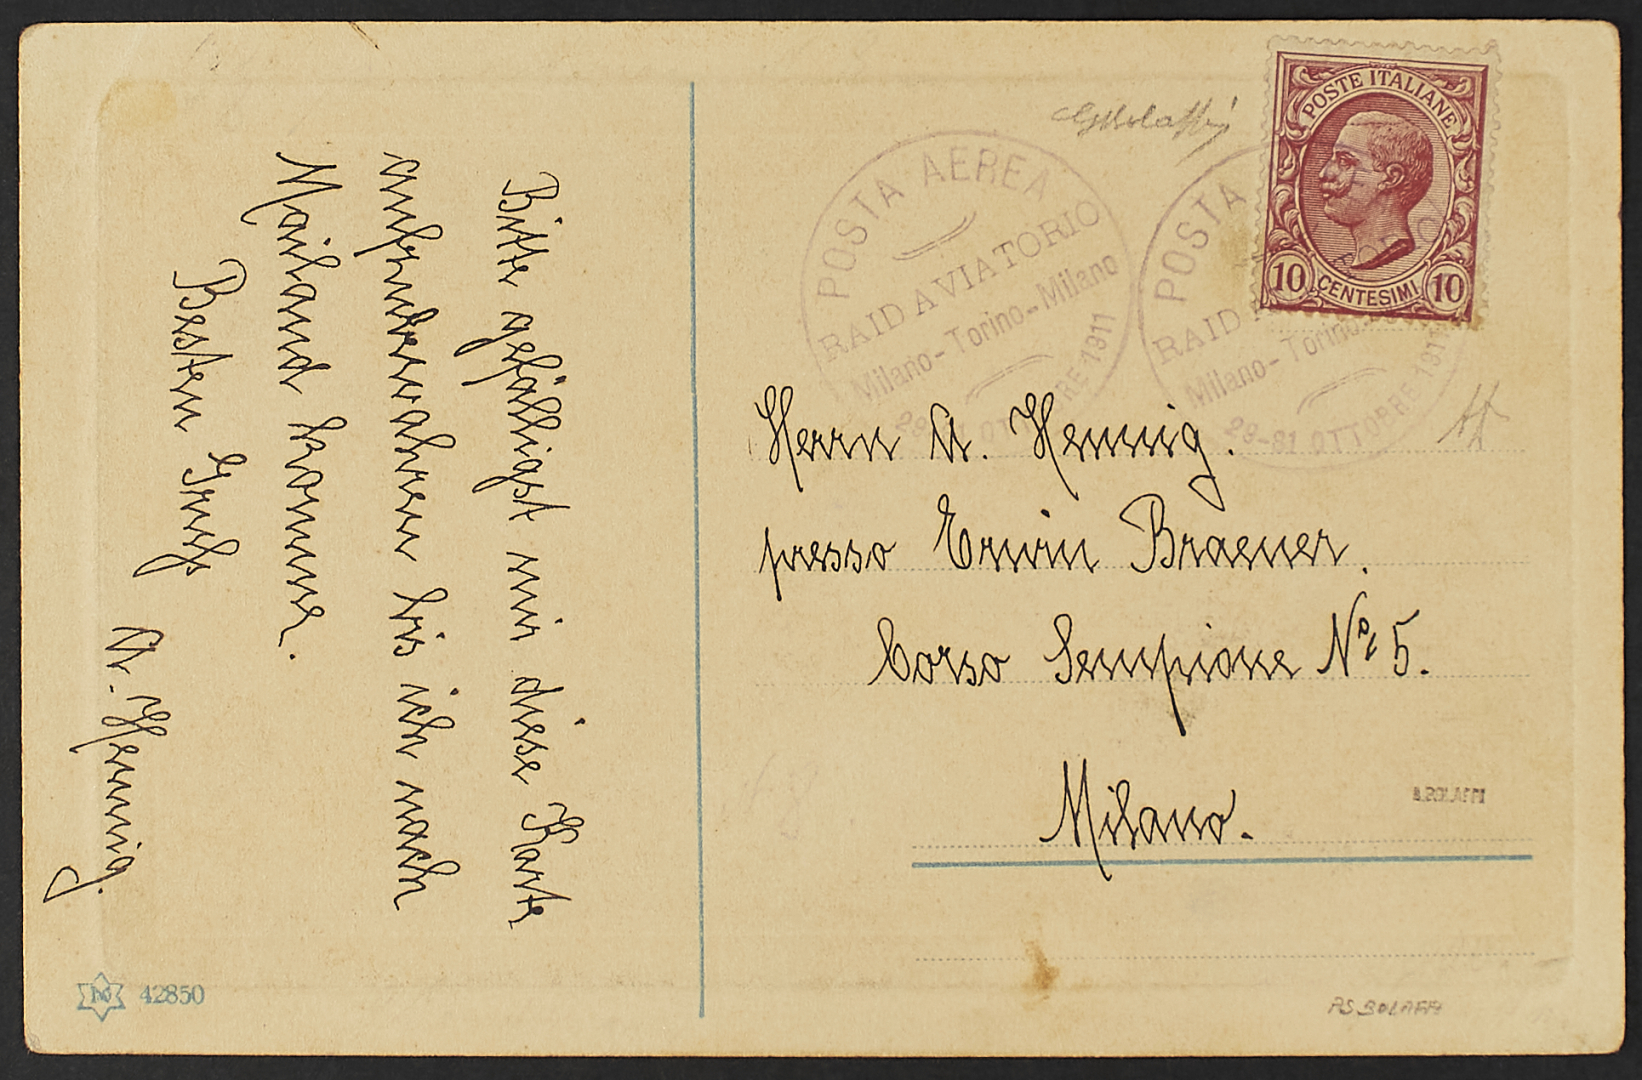 Bitte gefälligst mir diese Karte
aufzubewahren bis ich nach
Mailand komme.
Besten Gruß
A. Hennig.
POSTA AEREA
RAID AVIATORIO
Milano-Torino-Milano
OTTOBRE 1911
POSTA
RAID
Milano-Torino-
29-31 OTTOBRE 1911
POSTE ITALIANE
10 CENTESIMI 10
Herrn A. Hennig.
presso Erwin Braener.
Corso Sempione No 5.
Milano.
A.BOLAFFI
AS BOLAFFI
42850